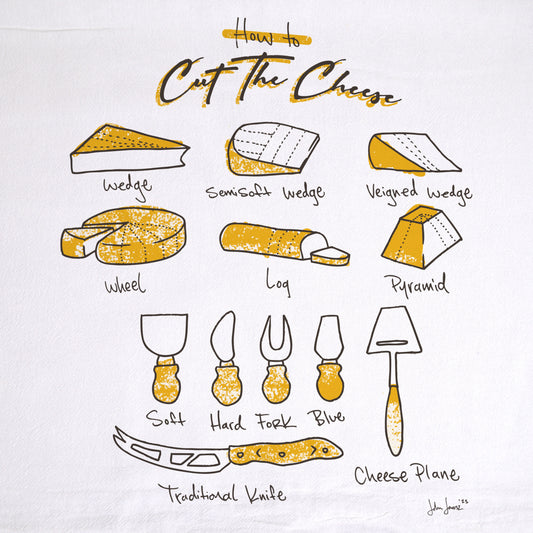 How to
Cut The Cheese
Wedge
Semisoft Wedge
Veigned Wedge
Wheel
Log
Pyramid
Soft
Hard
Fork
Blue
Cheese Plane
Traditional Knife